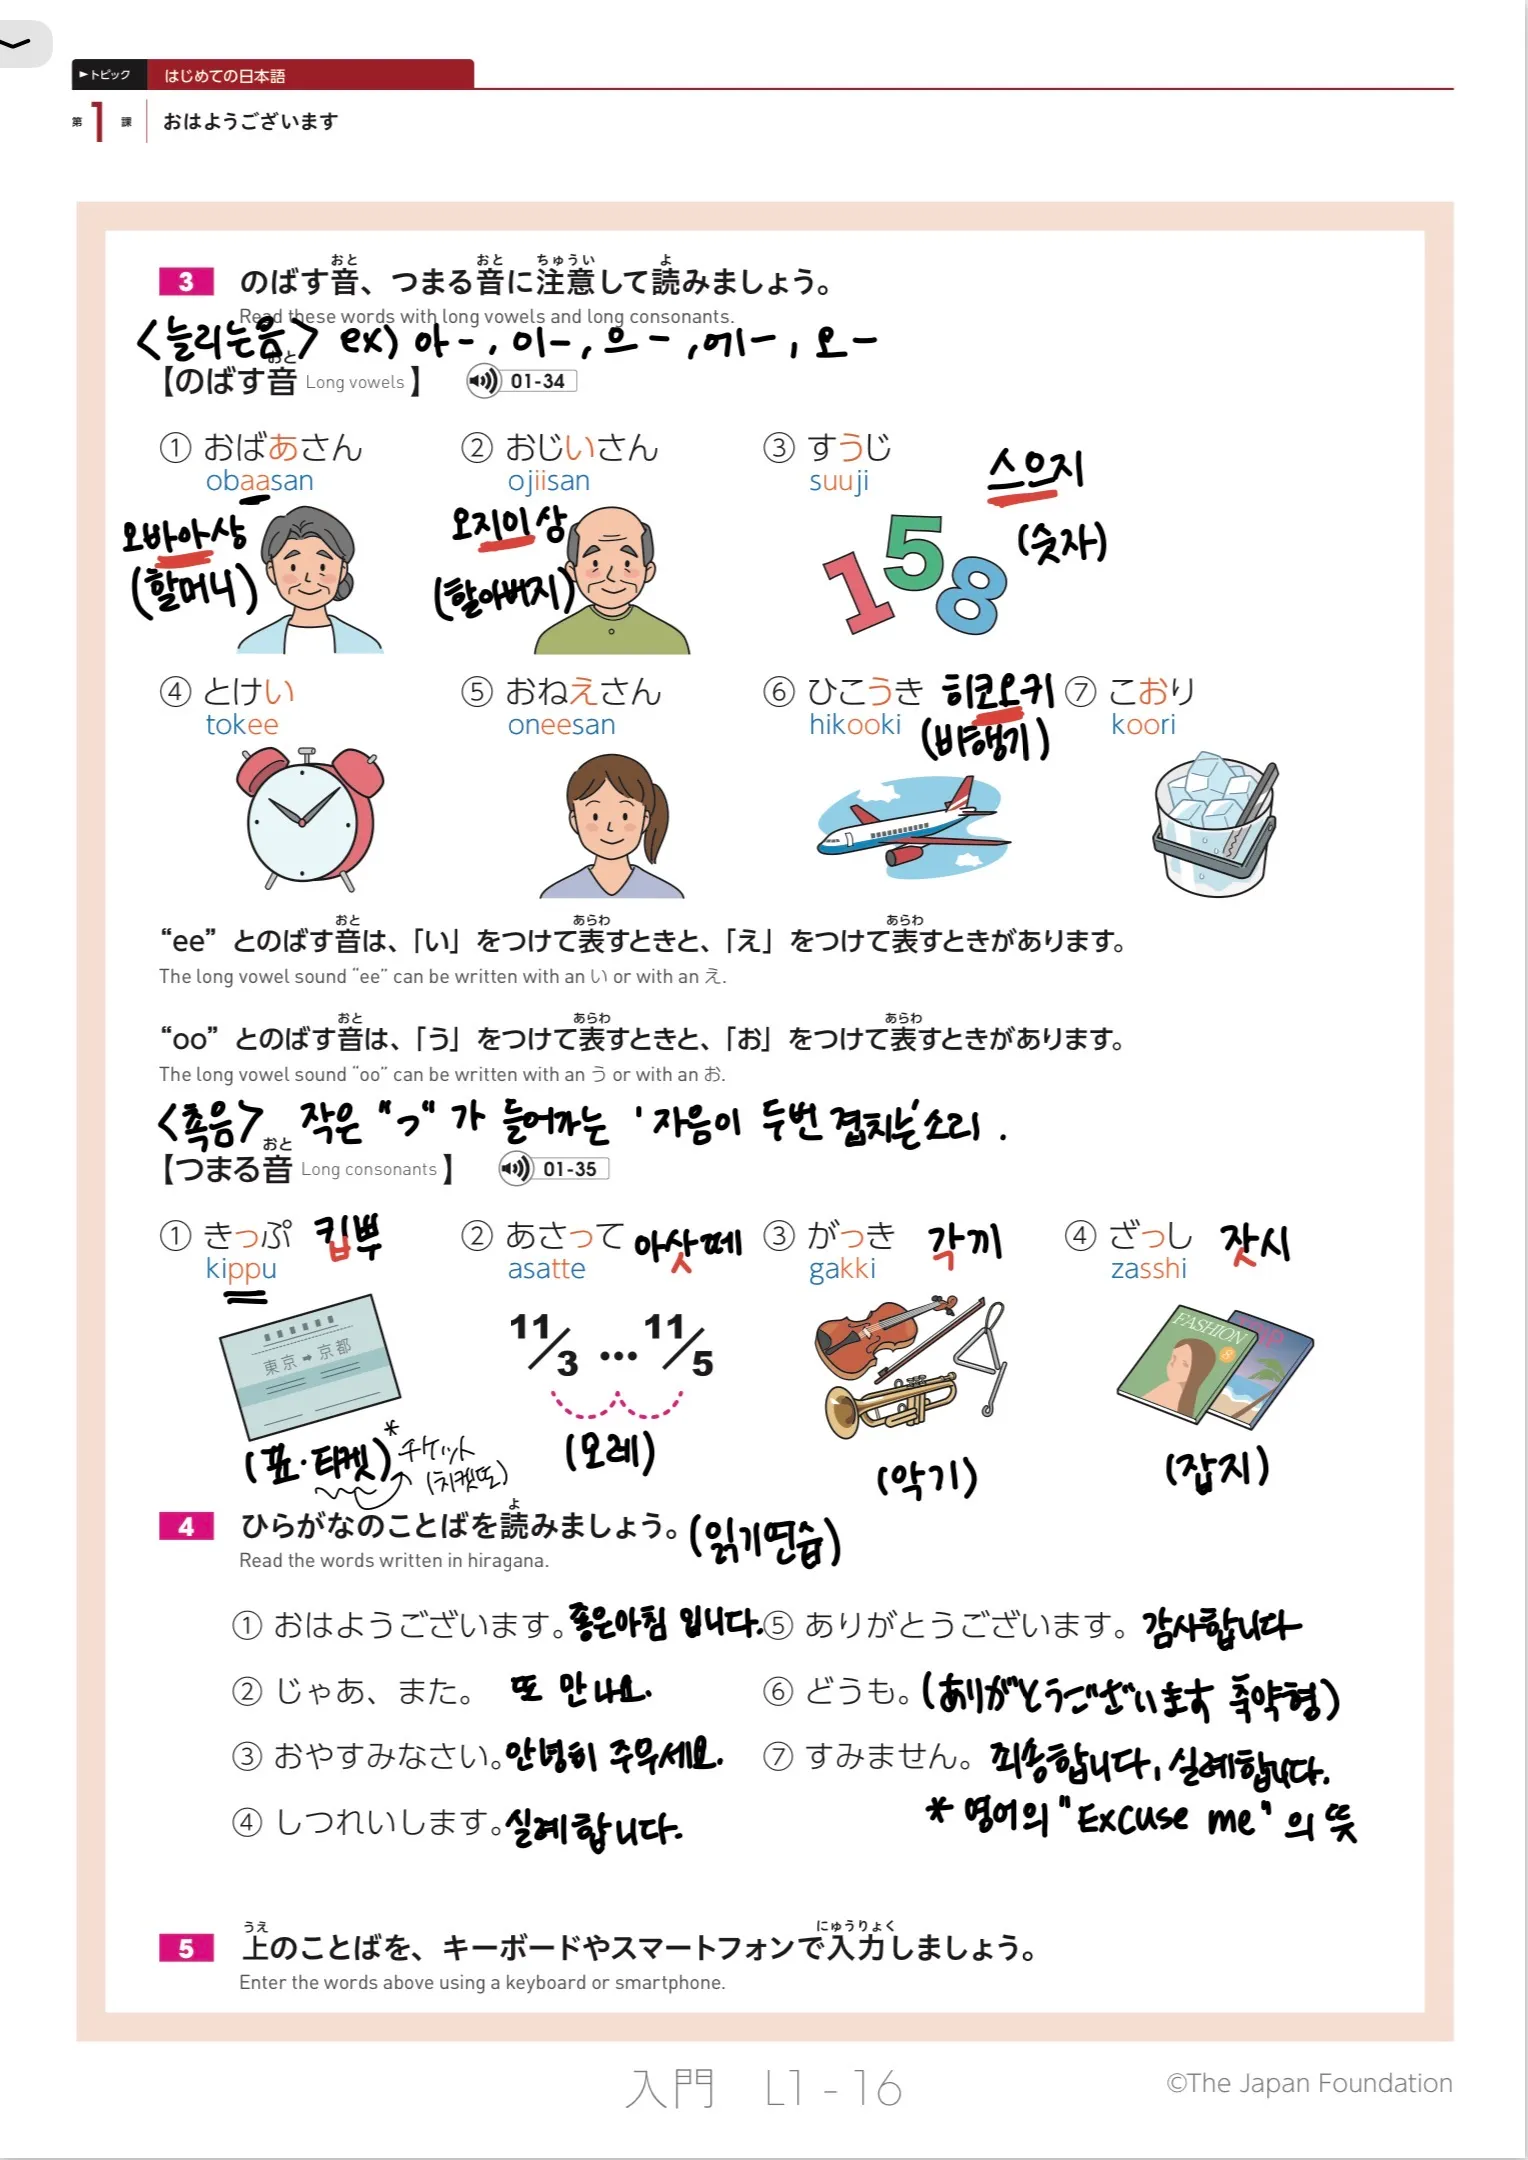 ▶トピック はじめての日本語
第1課 おはようございます
3 のばす音、つまる音に注意して読みましょう。
おと おと ちゅうい よ
Read these words with long vowels and long consonants.
<늘리는음> ex) 아-, 이-, 으-, 에-, 오-
【のばす音 Long vowels】 01-34
おと
① おばあさん ② おじいさん ③ すうじ
obaasan ojiisan suuji
스으지
오바아상 오지이상
(숫자)
(할머니) (할아버지)
1 5 8
④ とけい ⑤ おねえさん ⑥ ひこうき 히코오키 ⑦ こおり
tokee oneesan hikooki (비행기) koori
おと あらわ あらわ
“ee” とのばす音は、「い」をつけて表すときと、「え」をつけて表すときがあります。
The long vowel sound “ee” can be written with an い or with an え.
おと あらわ あらわ
“oo” とのばす音は、「う」をつけて表すときと、「お」をつけて表すときがあります。
The long vowel sound “oo” can be written with an う or with an お.
<촉음> 작은 "っ"가 들어가는 '자음이 두번 겹치는' 소리.
おと
【つまる音 Long consonants】 01-35
① きっぷ 킵뿌 ② あさって 아삿떼 ③ がっき 각끼 ④ ざっし 잣시
kippu asatte gakki zasshi
東京➡京都
11/3 … 11/5
FASHION 8
(표·티켓)* チケット
(치켓또)
(모레)
(악기)
(잡지)
よ
4 ひらがなのことばを読みましょう。(읽기연습)
Read the words written in hiragana.
① おはようございます。좋은아침 입니다.
⑤ ありがとうございます。감사합니다
② じゃあ、また。 또 만나요.
⑥ どうも。(ありがとうございます 축약형)
③ おやすみなさい。안녕히 주무세요.
⑦ すみません。 죄송합니다, 실례합니다.
④ しつれいします。실례합니다.
* 영어의 "Excuse me"의 뜻
うえ にゅうりょく
5 上のことばを、キーボードやスマートフォンで入力しましょう。
Enter the words above using a keyboard or smartphone.
入門 L1 - 16
©The Japan Foundation